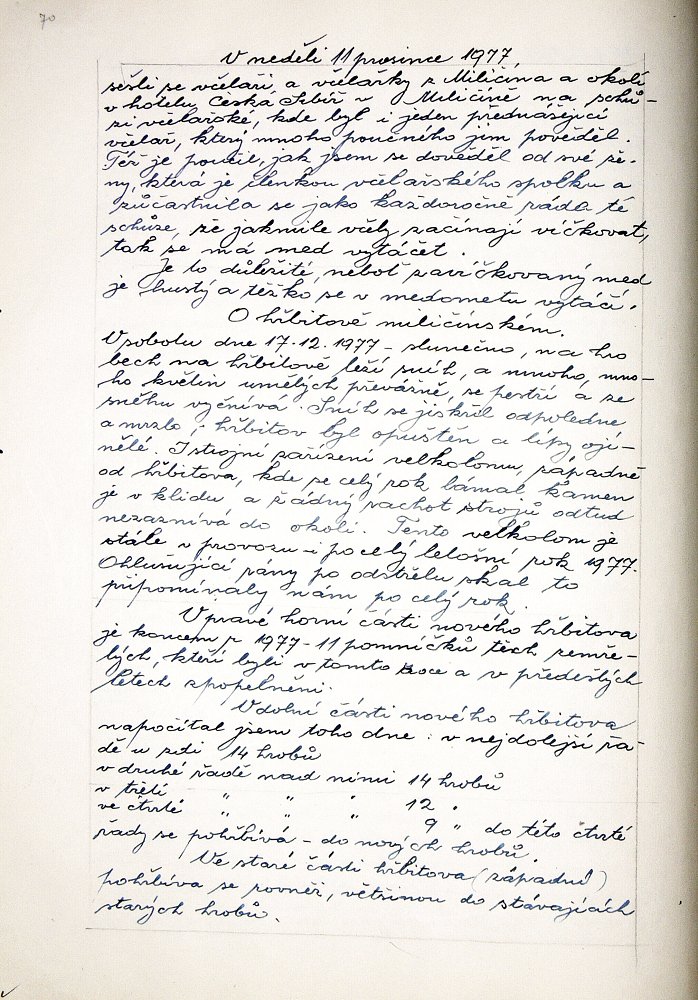 70
V neděli 11 prosince 1977,
sešli se včelaři, a včelařky z Miličína a okolí
v hotelu Česká Sibiř v Miličíně na schů-
zi včelařské, kde byl i jeden přednášející
včelař, který mnoho poučného jim pověděl.
Též je poučil, jak jsem se dověděl od své že-
ny, která je členkou včelařského spolku a
zůčastnila se jako každoročně ráda té
schůze, že jakmile včely začínají víčkovat,
tak se má med vytáčet.
Je to důležité, neboť zavíčkovaný med
je hustý a těžko se v medometu vytáčí.
O hřbitově miličínském.
V sobotu dne 17.12.1977 - slunečno, na hro
bech na hřbitově leží sníh, a mnoho, mno-
ho květin umělých převážně, se pestří a ze
sněhu vyčnívá. Sníh se jiskřil odpoledne
a mrzlo, hřbitov byl opuštěn a lípy oji-
nělé. I strojní zařízení velkolomu, západně
od hřbitova, kde se celý rok lámal kámen
je v klidu a žádný rachot strojů odtud
nezaznívá do okolí. Tento velkolom je
stále v provozu - i po celý letošní rok 1977.
Ohlušující rány po odstřelu skal to
připomínaly nám po celý rok.
V pravé horní části nového hřbitova
je koncem r 1977 - 11 pomníčků těch zemře-
lých, kteří byli v tomto roce a v předešlých
letech zpopelněni.
V dolní části nového hřbitova
napočítal jsem toho dne: v nejdolejší řa-
dě u zdi 14 hrobů
v druhé řadě nad nimi 14 hrobů
v třetí " " " 12 "
ve čtvrté " " " 9 " do této čtvrté
řady se pohřbívá - do nových hrobů.
Ve staré části hřbitova (západní)
pohřbíva se rovněž, většinou do stávajících
starých hrobů.